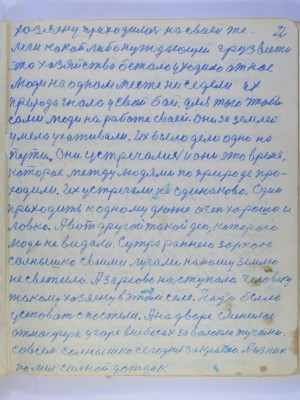 21
хозяену приходилося на своей те-
леги какой либо нуждающей груз вести
это хозяйство бегало уходило от нас
люди на одном месте ни седели их
природа гнало у свой бой. для того чтобы
сами люди на работе своей они за землей
умело ухаживали. Их было дело одно на
пути. Они устречалися и они это время,
которое между людями по природе про-
ходили. Их устречали не одинаково. Один
приходить к одному дюже очен хорошо и
ловко. А вот другой такой ден, которого
люди не видали. Сутра раннего зоркою
солнышко своими лучами на нашу землю
не светило. А за реово наступала человеку
такому хозяену в этом селе. Надо было
уставать с постели. А на дворе сменилася
атмосфера у горе в небесах заволокло тучами
совсем солнышко сегодня закрыто. Мазник
полил сильной дождик